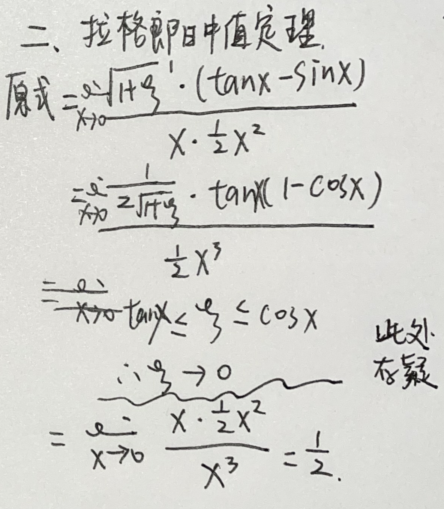 二、拉格郎日中值定理.
原式 = lim x→0 √(1+ξ)' · (tanx - sinx) / (x · 1/2 x²)
= lim x→0 1/(2√(1+ξ)) · tanx(1 - cosx) / (1/2 x³)
= lim x→0 tanx ≤ ξ ≤ cosx
此处
存疑
∴ ξ → 0
= lim x→0 (x · 1/2 x²) / x³ = 1/2.